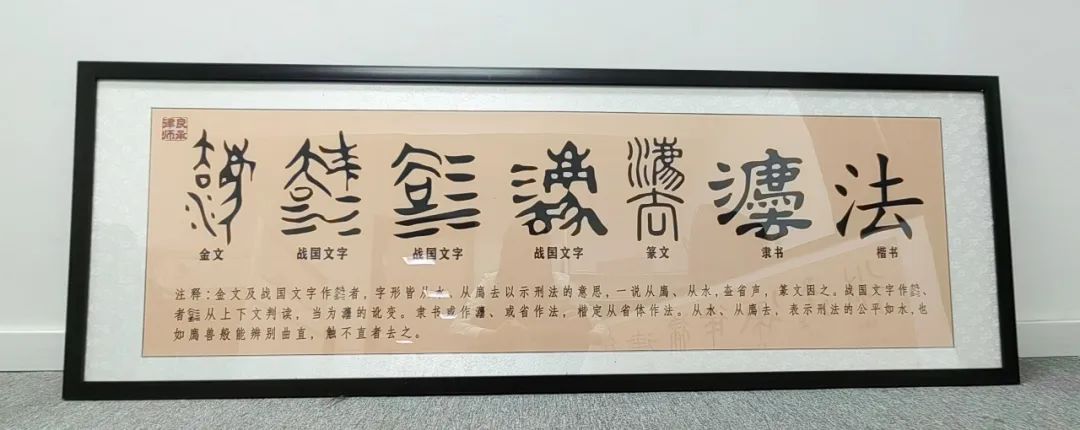 良承
律师
法
金文 战国文字 战国文字 战国文字 篆文 隶书 楷书
注释：金文及战国文字作者，字形皆从水、从廌去以示刑法的意思，一说从廌、从水，盍省声，篆文因之。战国文字作、
者从上下文判读，当为灋的讹变。隶书或作灋、或省作法，楷定从省体作法。从水、从廌去，表示刑法的公平如水，也
如廌兽般能辨别曲直，触不直者去之。